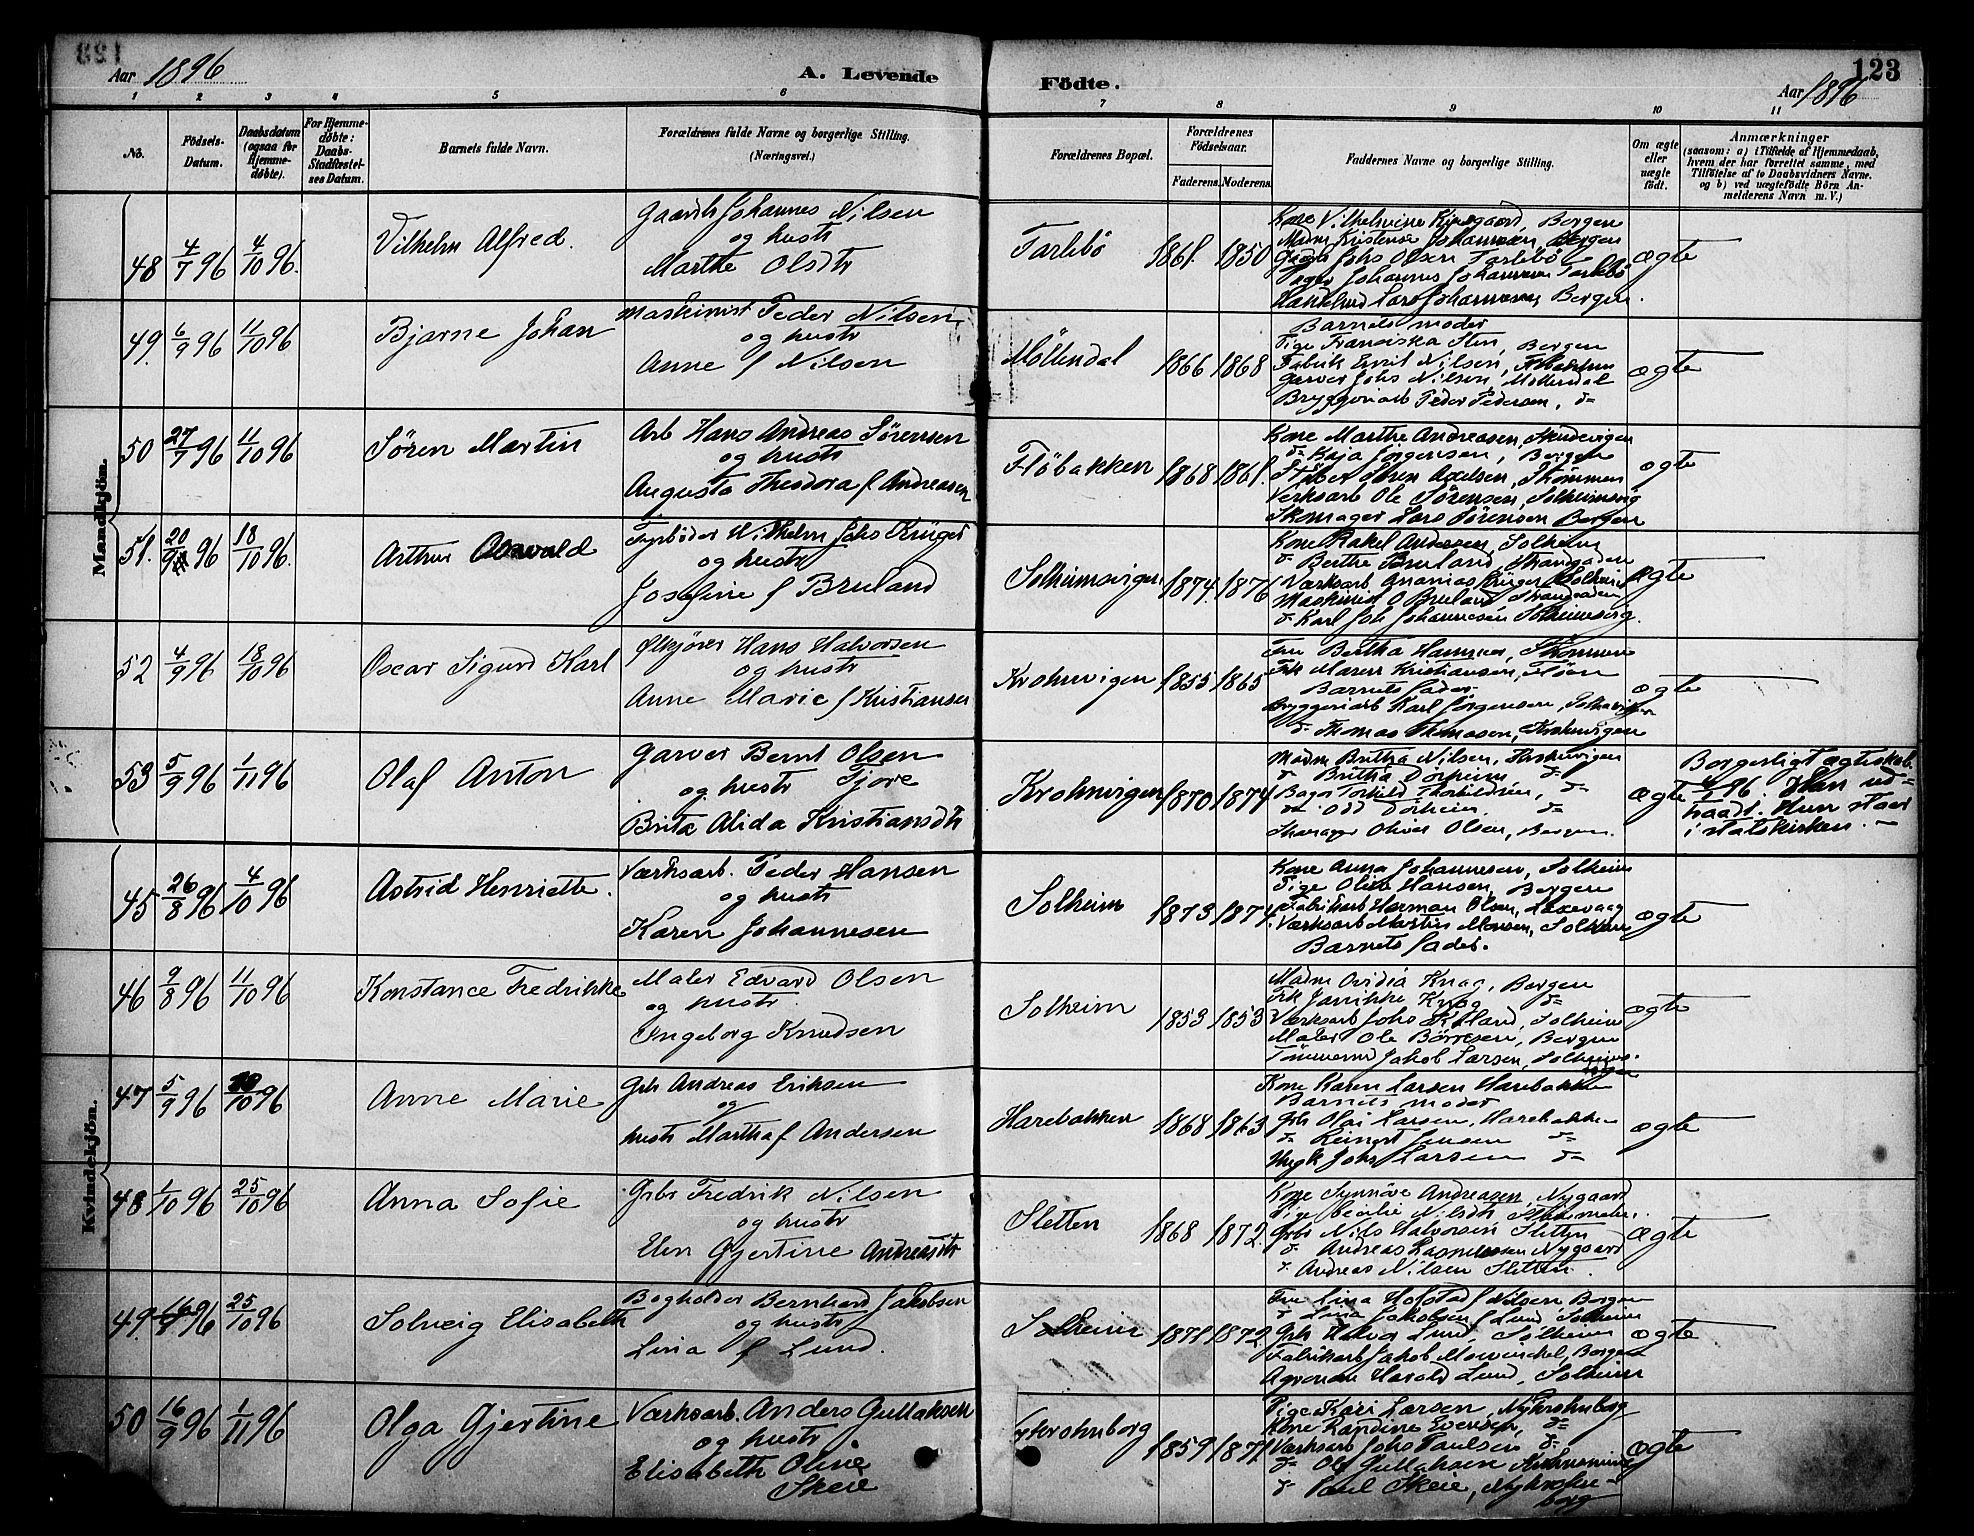 Aar 1896
A. Levende
Födte.
123
Aar 1896
1 2 3 4 5 6 7 8 9 10 11
No.
Födsels-
Datum.
Daabsdatum
(ogsaa for
Hjemme-
døbte).
For Hjemme-
døbte:
Daabs-
Stadfæstel-
ses Datum.
Barnets fulde Navn.
Forældrenes fulde Navne og borgerlige Stilling.
(Næringsvei.)
Forældrenes Bopæl.
Forældrenes
Födselsaar.
Faderens. Moderens.
Faddernes Navne og borgerlige Stilling.
Om ægte
eller
uægte
født.
Anmærkninger
(saasom: a) i Tilfælde af Hjemmedaab,
hvem der har forrettet samme, med
Tilföielse af to Daabsvidners Navne.
og b) ved uægtefödte Börn An-
melderens Navn m. V.)
Mandkjön.
48 4/7 96 4/10 96. Vilhelm Alfred.
Gaardb Johannes Nilsen
og hustr
Marthe Olsdtr
Tarlebö 1861. 1850
Kone Vilhelmine Bergen
Madm Kristense Johannesen, Bergen
Johs Olsen Tarlebö
Johannes Johannesen Tarlebö
Lars Johannesen Bergen.
ægte
49. 6/9 96 11/10 96 Bjarne Johan
Maskinist Peder Nilsen
og hustr
Anne f Nilsen
Möllendal 1866 1868
Barnets moder
Pige Franciska Sten, Bergen
Fabrik Emil Nilsen,
Garver Johs Nilsen, Möllendal
Bryggeriarb Peder Pedersen, d=
ægte
50 27/7 96 11/10 96 Søren Martin
Arb Hans Andreas Sørensen
og hustr
Augusta Theodora f Andreasen
Flöbakken 1868 1861.
Kone Marthe Andreasen, Skudevigen
d= Kaja Jörgensen, Bergen
Axelsen, Strömmen
Verksarb Ole Sørensen, Solheimsvig
Skomager Lars Sørensen Bergen
ægte
51. 20/9 96 18/10 96. Arthur
Fyrböder Wilhelm Johs Krüger
og hustr
Josefine f Bruland
Solheimsvigen 1874. 1876
Kone Rakel Andersen, Solheim
d= Berthe Bruland, Strandgaden
Værksarb Ananias Krüger Solheim
Maskinist O Bruland Strandgaden
d= Karl Joh Johannesen Solheimsvig.
ægte
52 4/9 96 18/10 96 Oscar Sigurd Karl
Ølkjörer Hans Halvorsen
og hustr
Anne Marie f Kristiansen
Krohnvigen 1855 1865
Fru Bertha Hammer, Strömmen
Frk Maren Kristiansen, Flöen
Barnets fader.
Bryggeriarb Karl Jörgensen,
d= Thomas Thomasen, Krohnvigen
ægte
53 5/9 96 1/11 96 Olaf Anton
Garver Bernt Olsen
og hustr Tjore
Brita Alida Kristiansdtr
Krohnvigen 1870 1874
Madm Britha Nilsen, Krohnvigen
d= Britha Dörheim, d=
Bager Torkild Thorkildsen, d=
d= Odd Dörheim d=
Oliver Olsen, Bergen.
ægte
Borgerligt ægteskab
4/4 96. Han ud=
traadt. Hun staar
i statskirken. -
Kvindekjön.
45 26/8 96 4/10 96 Astrid Henriette.
Værksarb. Peder Hansen
og hustr
Karen Johannesen
Solheim 1873 1874.
Kone Anna Johannesen, Solheim
Pige Olive Hansen, Bergen
Fabrikarb Herman Olsen, Laxevaag
Værksarb Martin Monsen, Solheim
Barnets fader.
ægte
46 9/8 96 11/10 96 Konstance Fredrikke
Maler Edvard Olsen
og hustr.
Ingeborg Knudsen
Solheim 1853 1853
Madm Ovidia Knag, Bergen
Frk Jannikke Knag d=
Værksarb Johs Solheim
Maler Ole Börresen, Bergen
Tömmermd Jakob Larsen, Solheims.
ægte
47 5/9 96 18/10 96 Anne Marie
Grb Andreas Eriksen
og
hustr Martha f Andersen
Harebakken 1868 1863
Kone Karen Larsen Harebakken
Barnets moder
Grb Olai Larsen, Harebakken
d= Jensen d=
Johs Larsen d=
ægte
48 1/10 96 25/10 96 Anna Sofie
Grbr Fredrik Nilsen
og hustr
Elen Gjertine Andreasdtr
Sletten 1868 1872.
Kone Synnöve Andreasen, Nygaard
Pige Cecilie Nilsdtr
Grbr Nils Halvorsen Sletten
d= Andreas Rasmussen Nygaard
d= Andreas Nilsen Sletten.
ægte
49. 16/9 96 25/10 96 Solveig Elisabeth
Bogholder Bernhard Jakobsen
og hustr
Lina f Lund.
Solheim 1871 1872.
Fru Lina Holstad f Nilsen Bergen
d= Lina Jakobsen f Lund, Solheim
Grb Halvor Lund, Solheim
Fabrikarb Jakob Bergen
Agronom Harald Lund, Solheim
ægte
50 16/9 96 1/11 96 Olga Gjertine
Værksarb. Anders Gullaksen
og hustr
Elisabeth Oline
Skeie
1859 1871.
Pige Kari Larsen, Nykrohnborg
Kone Randine Evensen, d=
Værksarb Johs Paulsen d=
d= Ole Gullaksen
d= Paul Skeie, Nykrohn=
borg
ægte